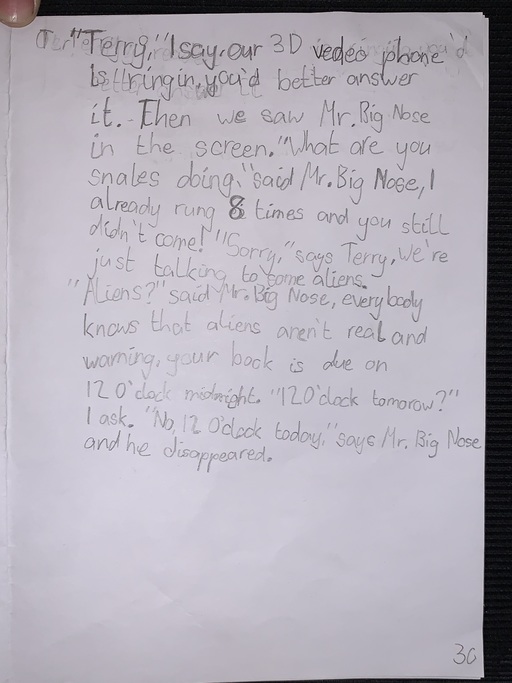 "Terry," I say, our 3D vedeo phone
is ringin, you'd better answer
it. Then we saw Mr. Big Nose
in the screen. "What are you
snales doing," said Mr. Big Nose, I
already rung 8 times and you still
didn't come! "Sorry," says Terry, We're
just talking to some aliens.
"Aliens?" said Mr. Big Nose, everybody
knows that aliens aren't real and
warning, your book is due on
12 O'clock midnight. "12 O'clock tomorow?"
I ask. "No, 12 O'clock today," says Mr. Big Nose
and he disappeared.
30